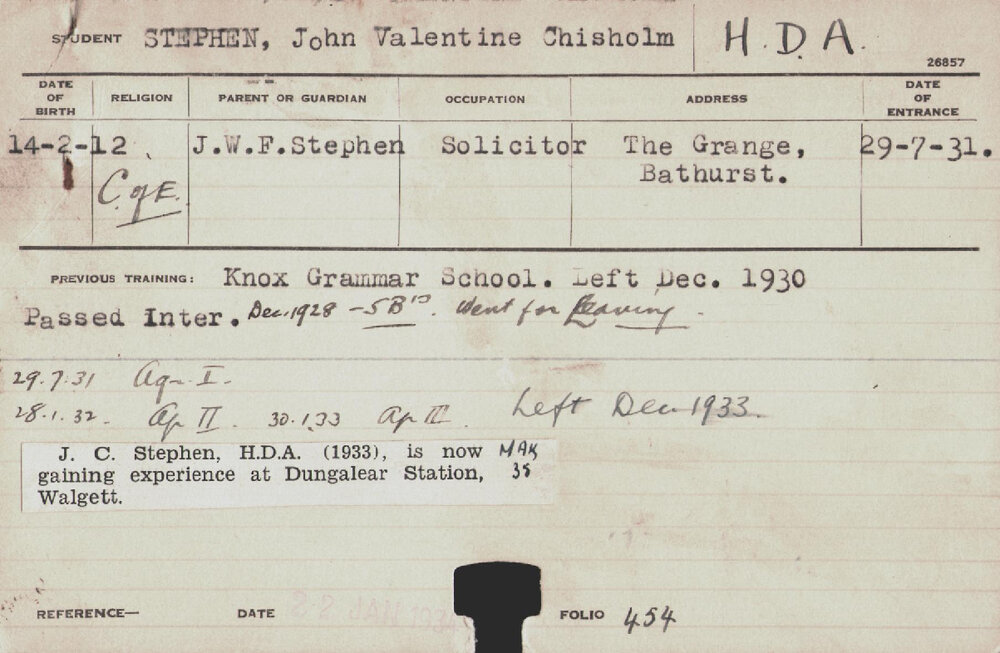 STUDENT STEPHEN, John Valentine Chisholm H.D.A.
26857
DATE OF BIRTH RELIGION PARENT OR GUARDIAN OCCUPATION ADDRESS DATE OF ENTRANCE
14-2-12 J.W.F.Stephen Solicitor The Grange, 29-7-31.
C of E. Bathurst.
PREVIOUS TRAINING: Knox Grammar School. Left Dec. 1930
Passed Inter. Dec. 1928 - 5 B's. Went for Leaving.
29.7.31 Ag- I.
28.1.32. Ag II. 30.1.33 Ag III. Left Dec 1933.
J. C. Stephen, H.D.A. (1933), is now MAR
gaining experience at Dungalear Station, 35
Walgett.
REFERENCE— DATE 22 JAN 193 FOLIO 454